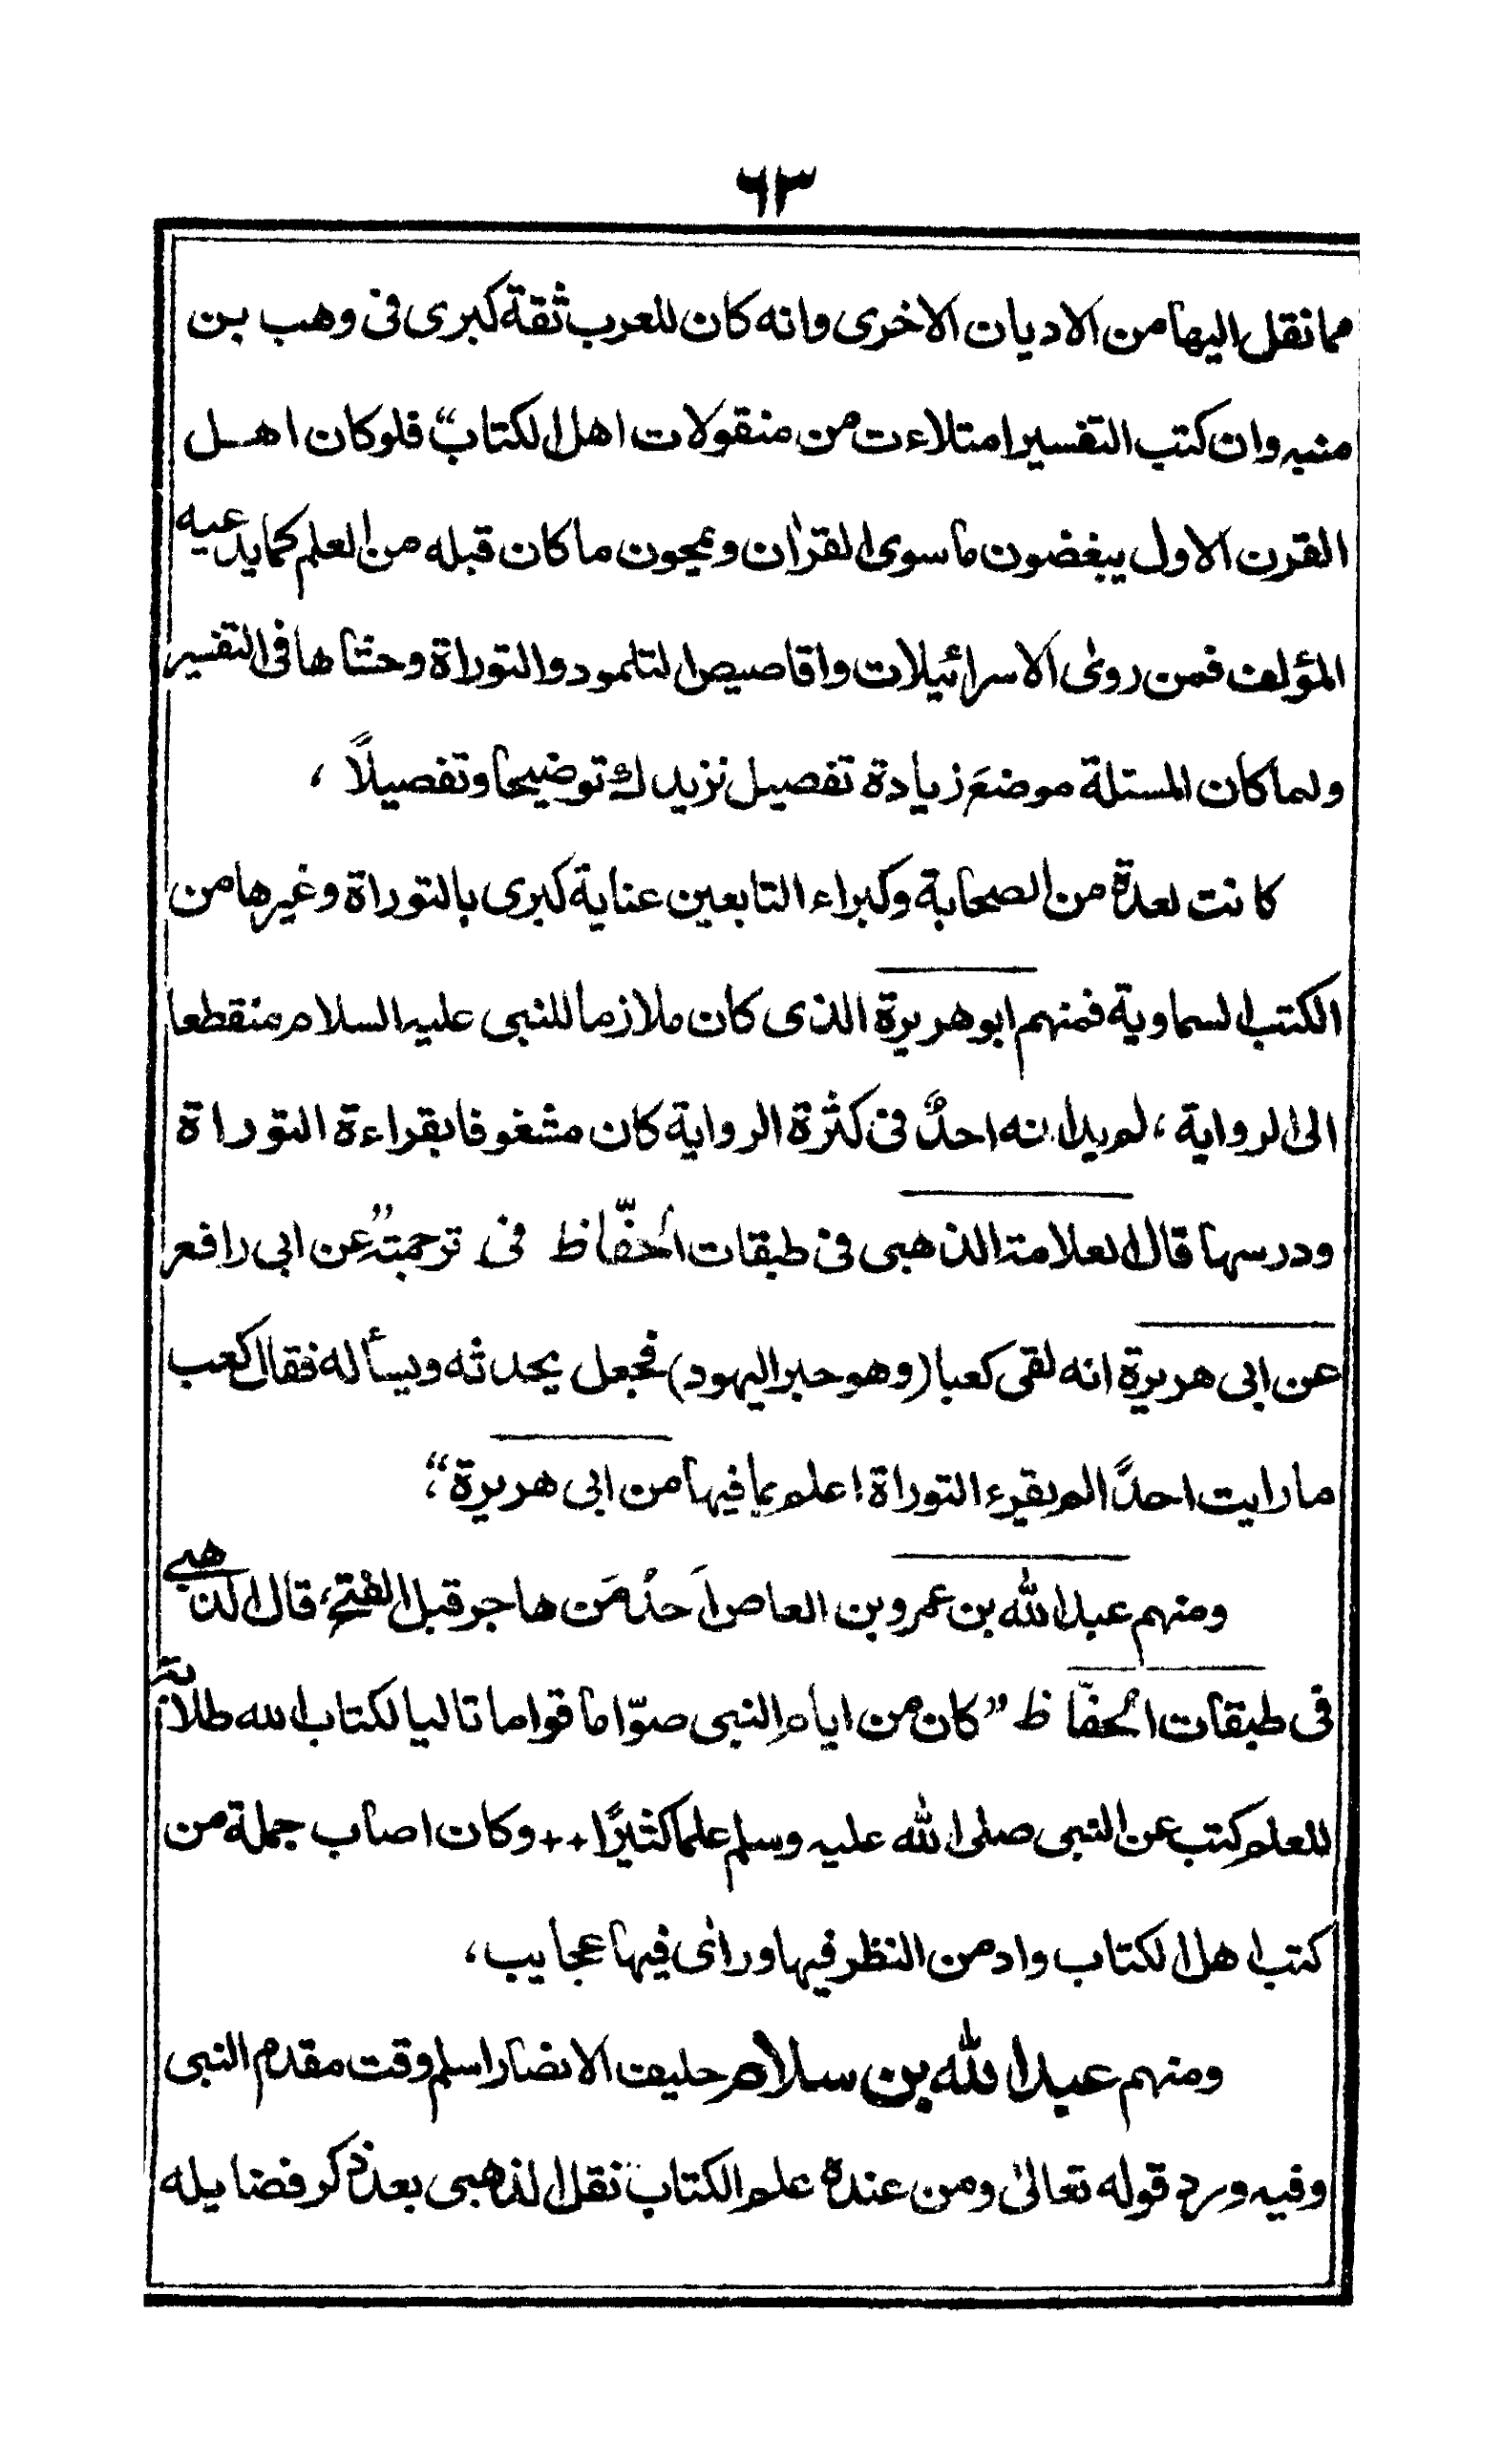 ٦٣
مما نقل اليها من الاديان الاخرى وانه كان للعرب ثقة كبرى فى وهب بن
منبه وان كتب التفسير امتلاءت من منقولات اهل الكتاب“ فلو كان اهل
القرن الاول يبغضون ما سوى القرأن ويمحون ما كان قبله من العلم كما يدعيه
المؤلف فمن روى الاسرائيلات واقاصيص التلمود والتوراة وحشاها فى التفسير
ولما كان المسئلة موضعَ زيادة تفصيل نزيدك توضيحا وتفصيلاً ،
كانت لعدة من الصحابة وكبراء التابعين عناية كبرى بالتوراة وغيرها من
الكتب السماوية فمنهم ابو هريرة الذى كان ملازما للنبى عليه السلام منقطعا
الى الرواية ، لم يدانه احدٌ فى كثرة الرواية كان مشغوفا بقراءة التوراة
ودرسها قال العلامة الذهبى فى طبقات الحفّاظ فى ترجمته ”عن ابى رافع
عن ابى هريرة انه لقى كعبا (وهو حبر اليهود) فجعل يحدثه ويسأله فقال كعب
ما رايت احدًا لم يقرء التوراة اعلم بما فيها من ابى هريرة“،
ومنهم عبد الله بن عمرو بن العاص اَحدُ مَن هاجر قبل الفتح، قال الذهبى
فى طبقات الحفّاظ ”كان من ايام النبى صوّاما قواما تاليا لكتاب الله طلابة
للعلم كتب عن النبى صلى الله عليه وسلم علما كثيرًا ++ وكان اصاب جملة من
كتب اهل الكتاب وادمن النظر فيها ورأى فيها عجايب،
ومنهم عبد الله بن سلام حليف الانصار اسلم وقت مقدم النبى
وفيه ورد قوله تعالىٰ ومن عنده علم الكتاب“ نقل الذهبى بعد ذكر فضايله